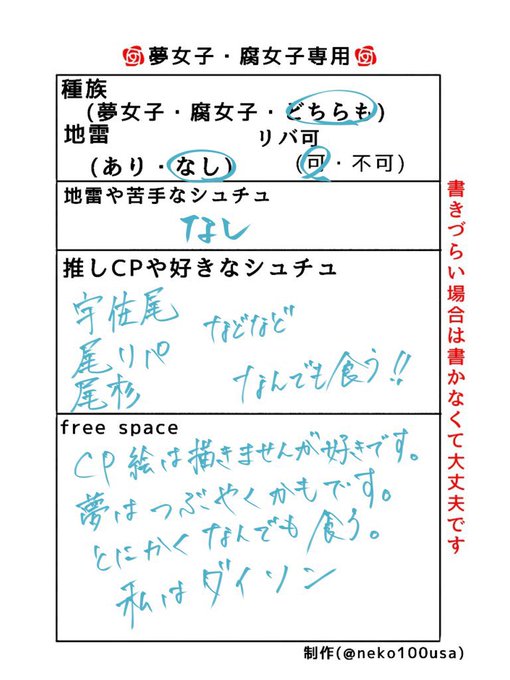 夢女子・腐女子専用
種族
(夢女子・腐女子・どちらも)
地雷 リバ可
(あり・なし) (可・不可)
地雷や苦手なシュチュ
なし
推しCPや好きなシュチュ
宇佐尾
尾リパ
尾杉
などなど
なんでも食う!!
free space
CP絵は描きませんが好きです。
夢はつぶやくかもです。
とにかくなんでも食う。
私はダイソン
書きづらい場合は書かなくて大丈夫です
制作(@neko100usa)